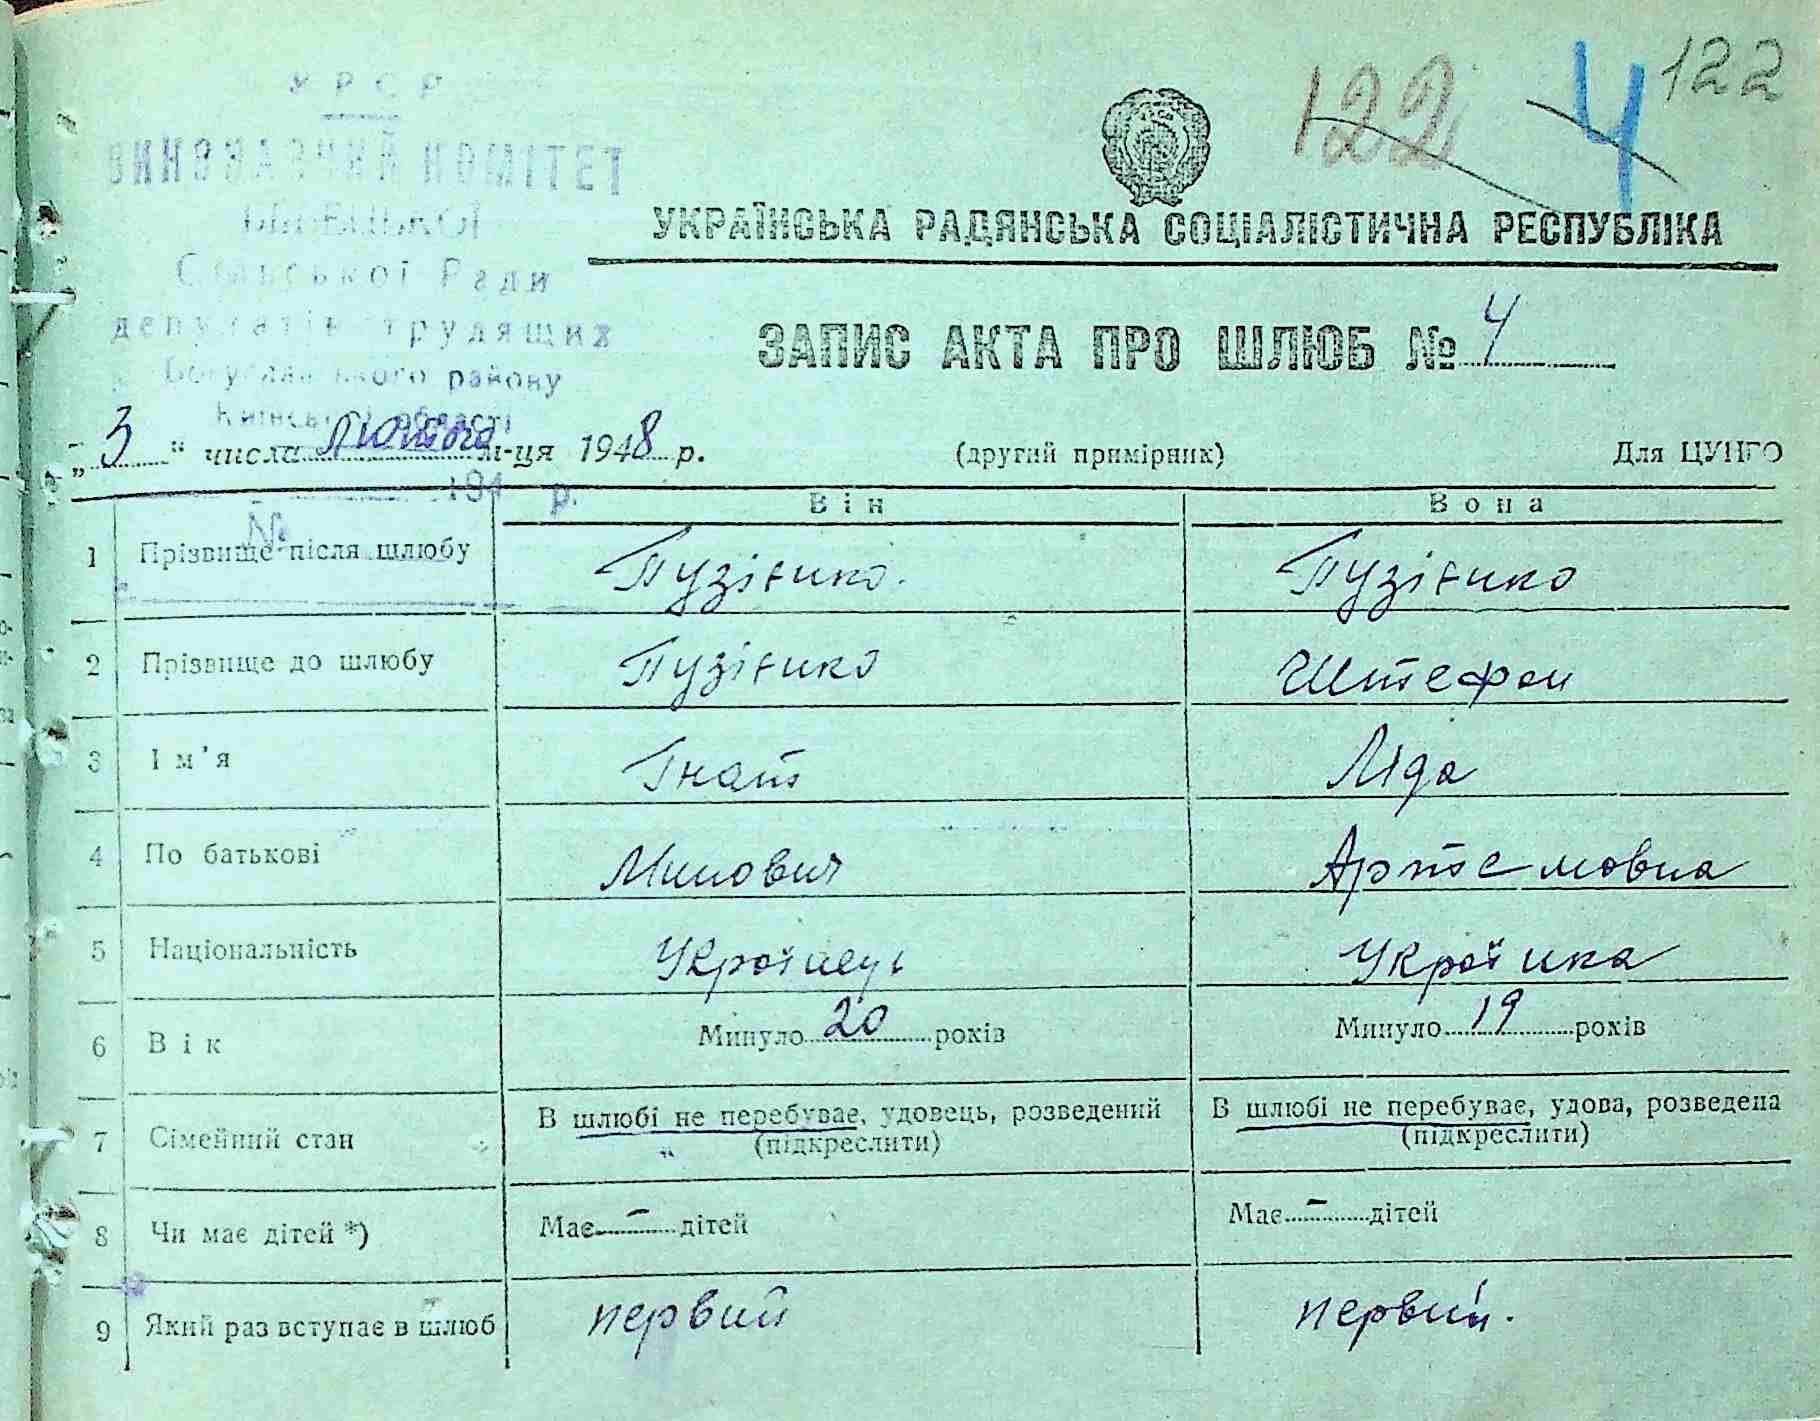 122 4 122
У Р С Р
ВИКОНАВЧИЙ КОМІТЕТ
Сільської Ради
депутатів трудящих
Богуславського району
Київської області
194 р.
№
УКРАЇНСЬКА РАДЯНСЬКА СОЦІАЛІСТИЧНА РЕСПУБЛІКА
ЗАПИС АКТА ПРО ШЛЮБ № 4
„3“ числа Лютого м-ця 1948 р. (другий примірник) Для ЦУНГО
Він Вона
1 Прізвище після шлюбу Пузієнко. Пузієнко
2 Прізвище до шлюбу Пузієнко Штефан
3 Ім'я Гнат Ліда
4 По батькові Минович Артемовна
5 Національність Українець Українка
6 Вік Минуло 20 років Минуло 19 років
7 Сімейний стан В шлюбі не перебуває, удовець, розведений (підкреслити) В шлюбі не перебуває, удова, розведена (підкреслити)
8 Чи має дітей *) Має – дітей Має – дітей
9 Який раз вступає в шлюб первий первий.